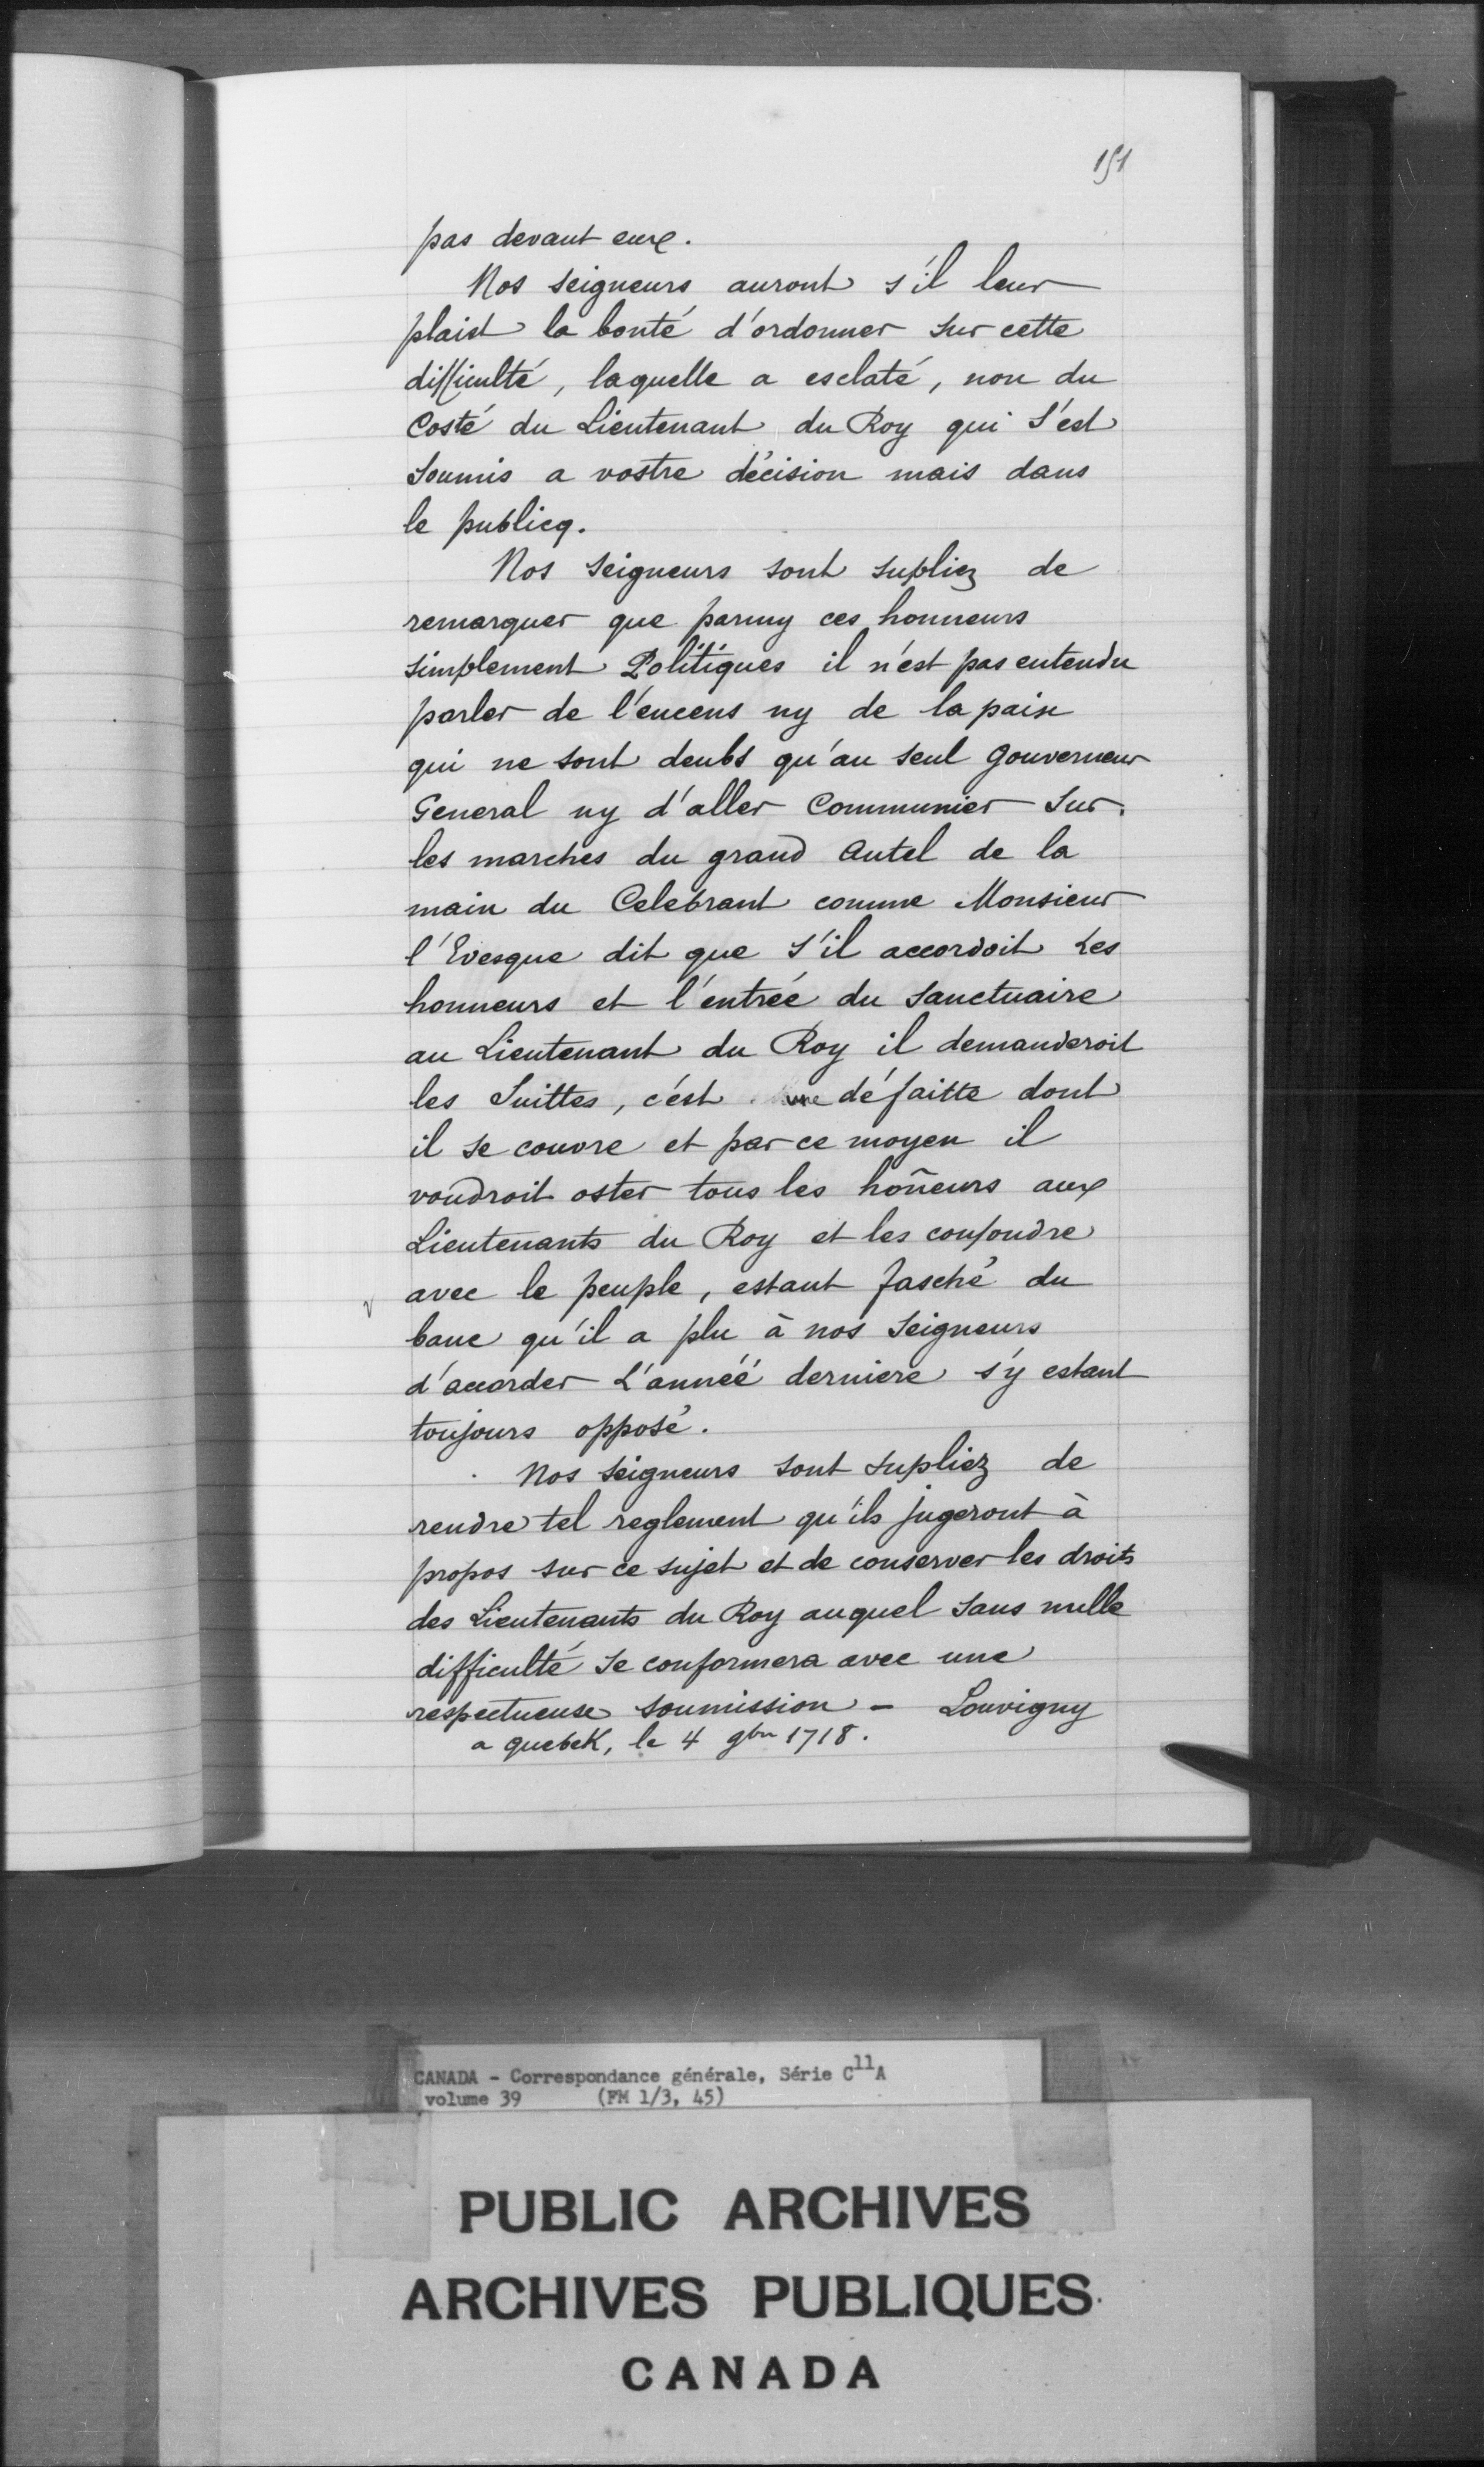 151
pas devant eux.
Nos seigneurs auront s'il leur
plaist la bonté d'ordonner sur cette
difficulté, laquelle a esclaté, non du
Costé du Lieutenant du Roy qui s'est
soumis a vostre décision mais dans
le publicq.
Nos seigneurs sont supliez de
remarquer que parmy ces honneurs
simplement Politiques il n'est pas entendu
parler de l'encens ny de la paix
qui ne sont deubs qu'au seul Gouverneur
General ny d'aller Communier sur
les marches du grand Autel de la
main du Celebrant comme Monsieur
l'Evesque dit que s'il accordoit Les
honneurs et l'entrée du sanctuaire
au Lieutenant du Roy il demanderoit
les suittes, c'est une défaitte dont
il se couvre et par ce moyen il
voudroit oster tous les hoñeurs aux
Lieutenants du Roy et les confondre
avec le peuple, estant fasché du
banc qu'il a plu à nos seigneurs
d'accorder L'année derniere s'y estant
toujours opposé.
Nos seigneurs sont supliez de
rendre tel reglement qu'ils jugeront à
propos sur ce sujet et de conserver les droits
des Lieutenants du Roy auquel sans nulle
difficulté se conformera avec une
respectueuse soumission - Louvigny
a quebeK, le 4 9bre 1718.
CANADA - Correspondance générale, Série C11A
volume 39 (FM 1/3, 45)
PUBLIC ARCHIVES
ARCHIVES PUBLIQUES
CANADA